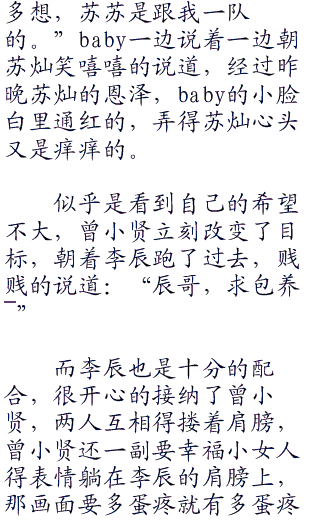 多想，苏苏是跟我一队
的。”baby一边说着一边朝
苏灿笑嘻嘻的说道，经过昨
晚苏灿的恩泽，baby的小脸
白里通红的，弄得苏灿心头
又是痒痒的。
似乎是看到自己的希望
不大，曾小贤立刻改变了目
标，朝着李辰跑了过去，贱
贱的说道：“辰哥，求包养
~”
而李辰也是十分的配
合，很开心的接纳了曾小
贤，两人互相得搂着肩膀，
曾小贤还一副要幸福小女人
得表情躺在李辰的肩膀上，
那画面要多蛋疼就有多蛋疼